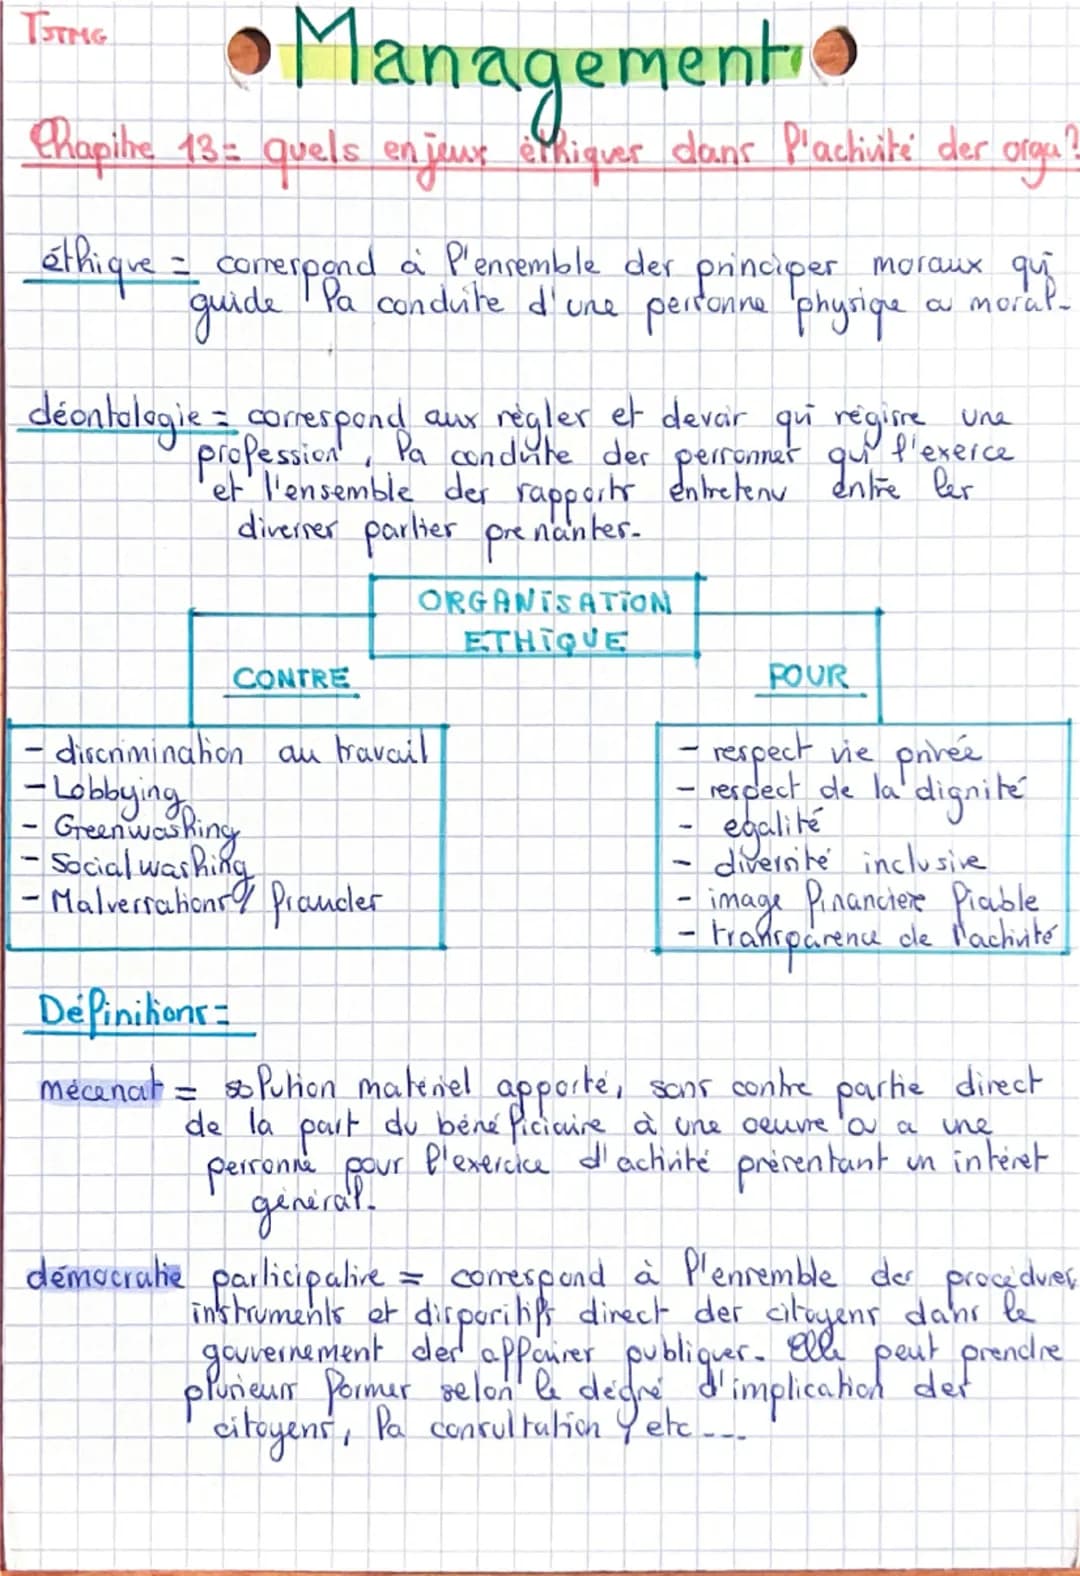 TSTMG
Management
Chapitre 13 = quels enjeux éthiques dans l'activité des orga?
éthique = correspond à l'ensemble des principes moraux qui
guide la conduite d'une personne physique ou moral.
déontologie = correspond aux règles et devoir qui régisse une
profession, la conduite des personnes qui l'exerce
et l'ensemble des rapports entretenu entre les
diverses parties prenantes.
ORGANISATION
ETHIQUE
CONTRE
- discrimination au travail
- Lobbying
- Greenwashing
- Social washing
- Malversations & fraudes
POUR
- respect vie privée
- respect de la dignité
- égalité
- diversité inclusive
- image financière fiable
- transparence de l'activité
Définitions =
mécénat = solution matériel apporté, sans contre partie direct
de la part du bénéficiaire à une oeuvre ou a une
personne pour l'exercice d'activité présentant un intéret
général.
démocratie participative = correspond à l'ensemble des procédures,
instruments et dispositifs direct des citoyens dans le
gouvernement des affaires publiques. Elle peut prendre
plusieurs formes selon le dégré d'implication des
citoyens, la consultation, etc...